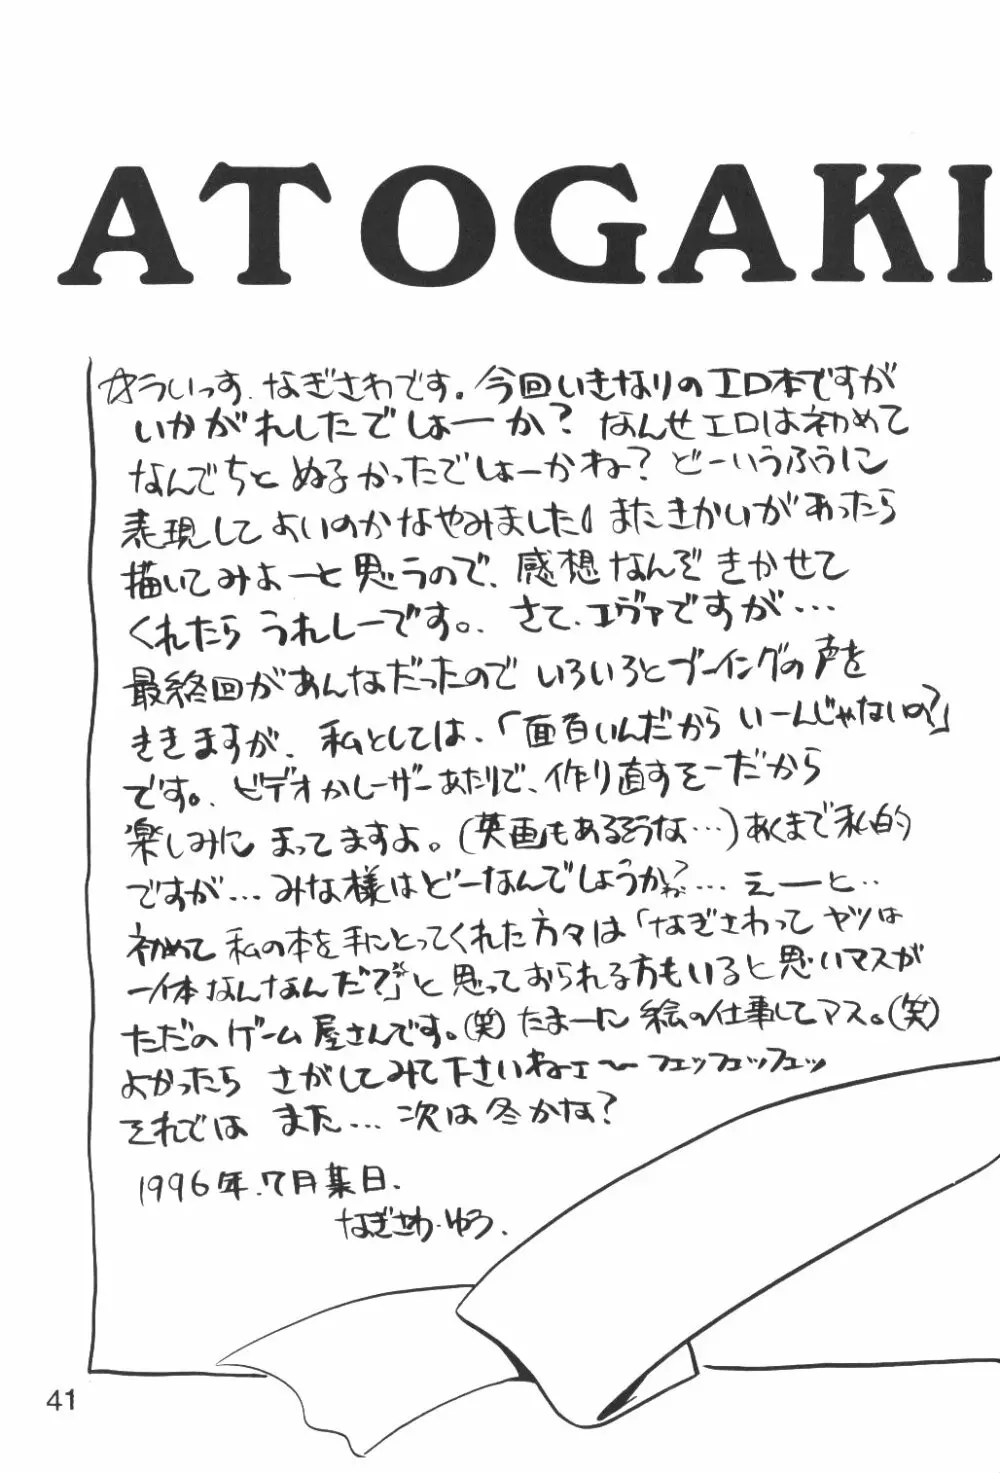 ATOGAKI
☆ういっす、なぎさわです。今回いきなりのエロ本ですが
いかがれしたでしょーか？なんせエロは初めて
なんでちとぬるかったでしょーかね？どーいうふうに
表現してよいのかなやみました。またきかいがあったら
描いてみよーと思うので、感想なんぞきかせて
くれたらうれしーです。さて、エヴァですが…
最終回があんなだったのでいろいろとブーイングの声を
ききますが、私としては、「面白いんだからいーんじゃないの？」
です。ビデオかレーザーあたりで、作り直すそーだから
楽しみにまってますよ。(英画もあるそうな…)あくまで私的
ですが…みな様はどーなんでしょうかね？…えーと‥
初めて私の本を手にとってくれた方々は「なぎさわってヤツは
一体なんなんだ？」と思っておられる方もいると思いマスが
ただのゲーム屋さんです。(笑)たまーに絵の仕事してマス。(笑)
よかったらさがしてみて下さいねェ〜フェッフェッフェッ
それではまた…次は冬かな？
1996年.7月某日.
なぎさわ・ゆう.
41